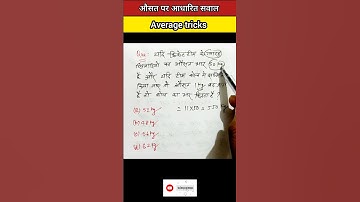 औसत पर आधारित सवाल
Average tricks
Que: यदि क्रिकेट टीम के ग्यारह
खिलाड़ियों का औसत भार 50 kg
है और यदि टीम कोच को शामिल
किया जाए तो औसत 1 kg बढ़
है तो कोच का भार कितना है ?
= 11×50 = 550 kg
(a)
(b)
(c)
(d) 62 kg
SUBSCRIBE